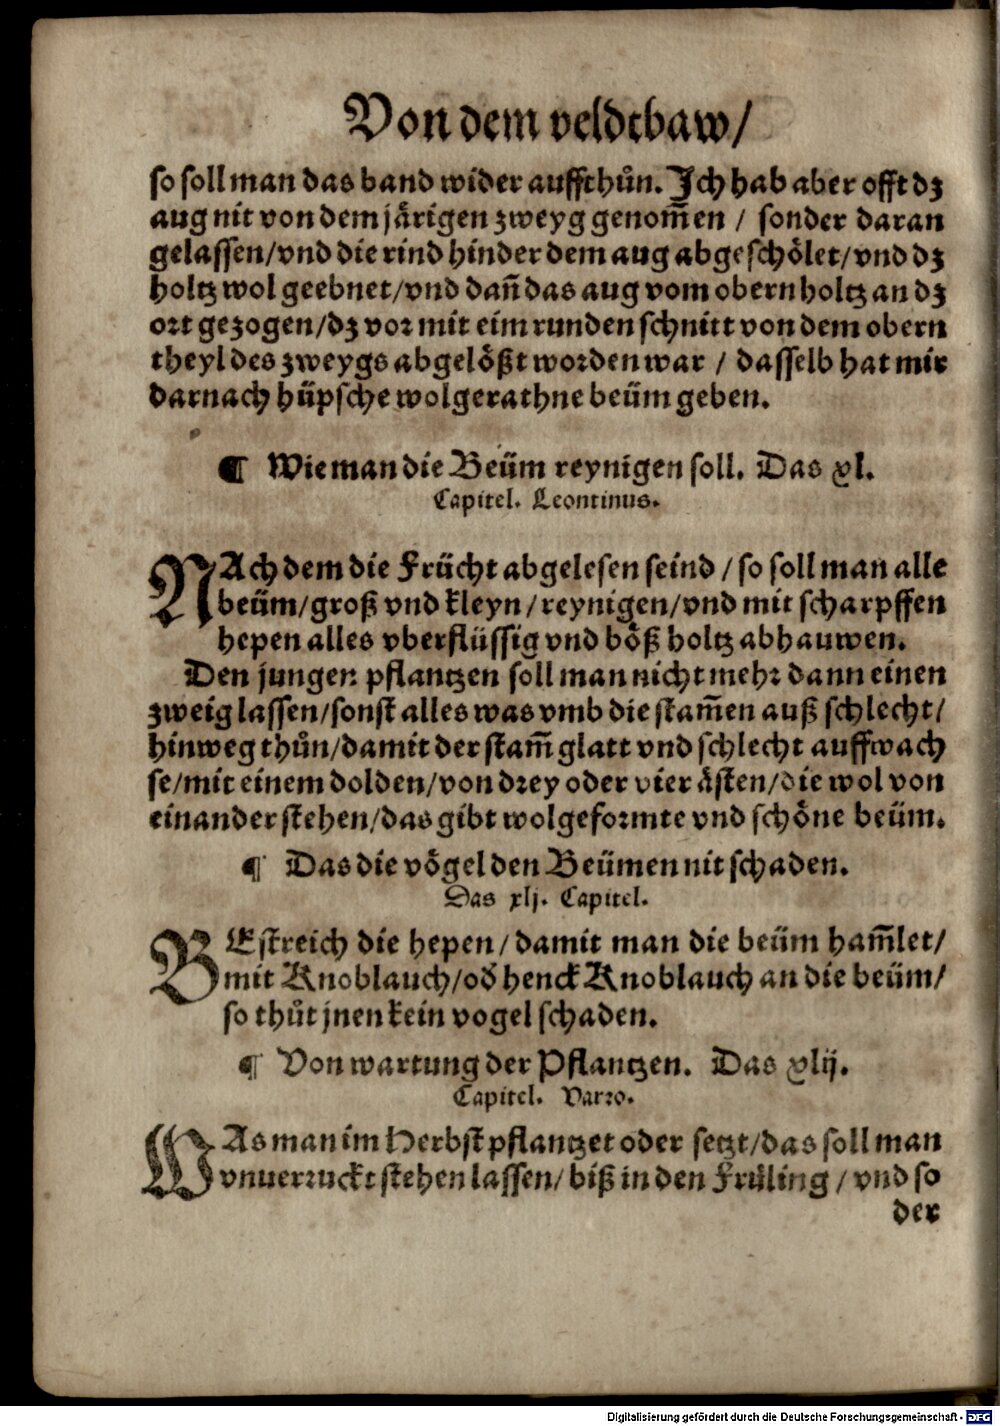 Von dem veldtbaw/
so soll man das band wider auffthůn. Ich hab aber offt dz
aug nit von dem järigen zweyg genom̃en / sonder daran
gelassen/vnd die rind hinder dem aug abgeschölet/vnd dz
holtz wol geebnet/vnd dañ das aug vom obern holtz an dz
ort gezogen/dz vor mit eim runden schnitt von dem obern
theyl des zweygs abgelößt worden war / dasselb hat mir
darnach hüpsche wolgerathne beüm geben.
¶ Wie man die Beüm reynigen soll. Das xl.
Capitel. Leontinus.
NAch dem die Frücht abgelesen seind / so soll man alle
beüm/groß vnd kleyn/reynigen/vnd mit scharpffen
hepen alles vberflüssig vnd bőß holtz abhauwen.
Den jungen pflantzen soll man nicht mehr dann einen
zweig lassen/sonst alles was vmb die stam̃en auß schlecht/
hinweg thůn/damit der stam̃ glatt vnd schlecht auffwach
se/mit einem dolden/von drey oder vier ästen/die wol von
einander stehen/das gibt wolgeformte vnd schöne beüm.
¶ Das die vögel den Beümen nit schaden.
Das xlj. Capitel.
BEstreich die hepen/damit man die beüm ham̃let/
mit Knoblauch/od̕ henck Knoblauch an die beüm/
so thůt jnen kein vogel schaden.
¶ Von wartung der Pflantzen. Das xlij.
Capitel. Varro.
WAs man im Herbst pflantzet oder setzt/das soll man
vnuerruckt stehen lassen/biß in den Früling / vnd so
der
Digitalisierung gefördert durch die Deutsche Forschungsgemeinschaft - DFG